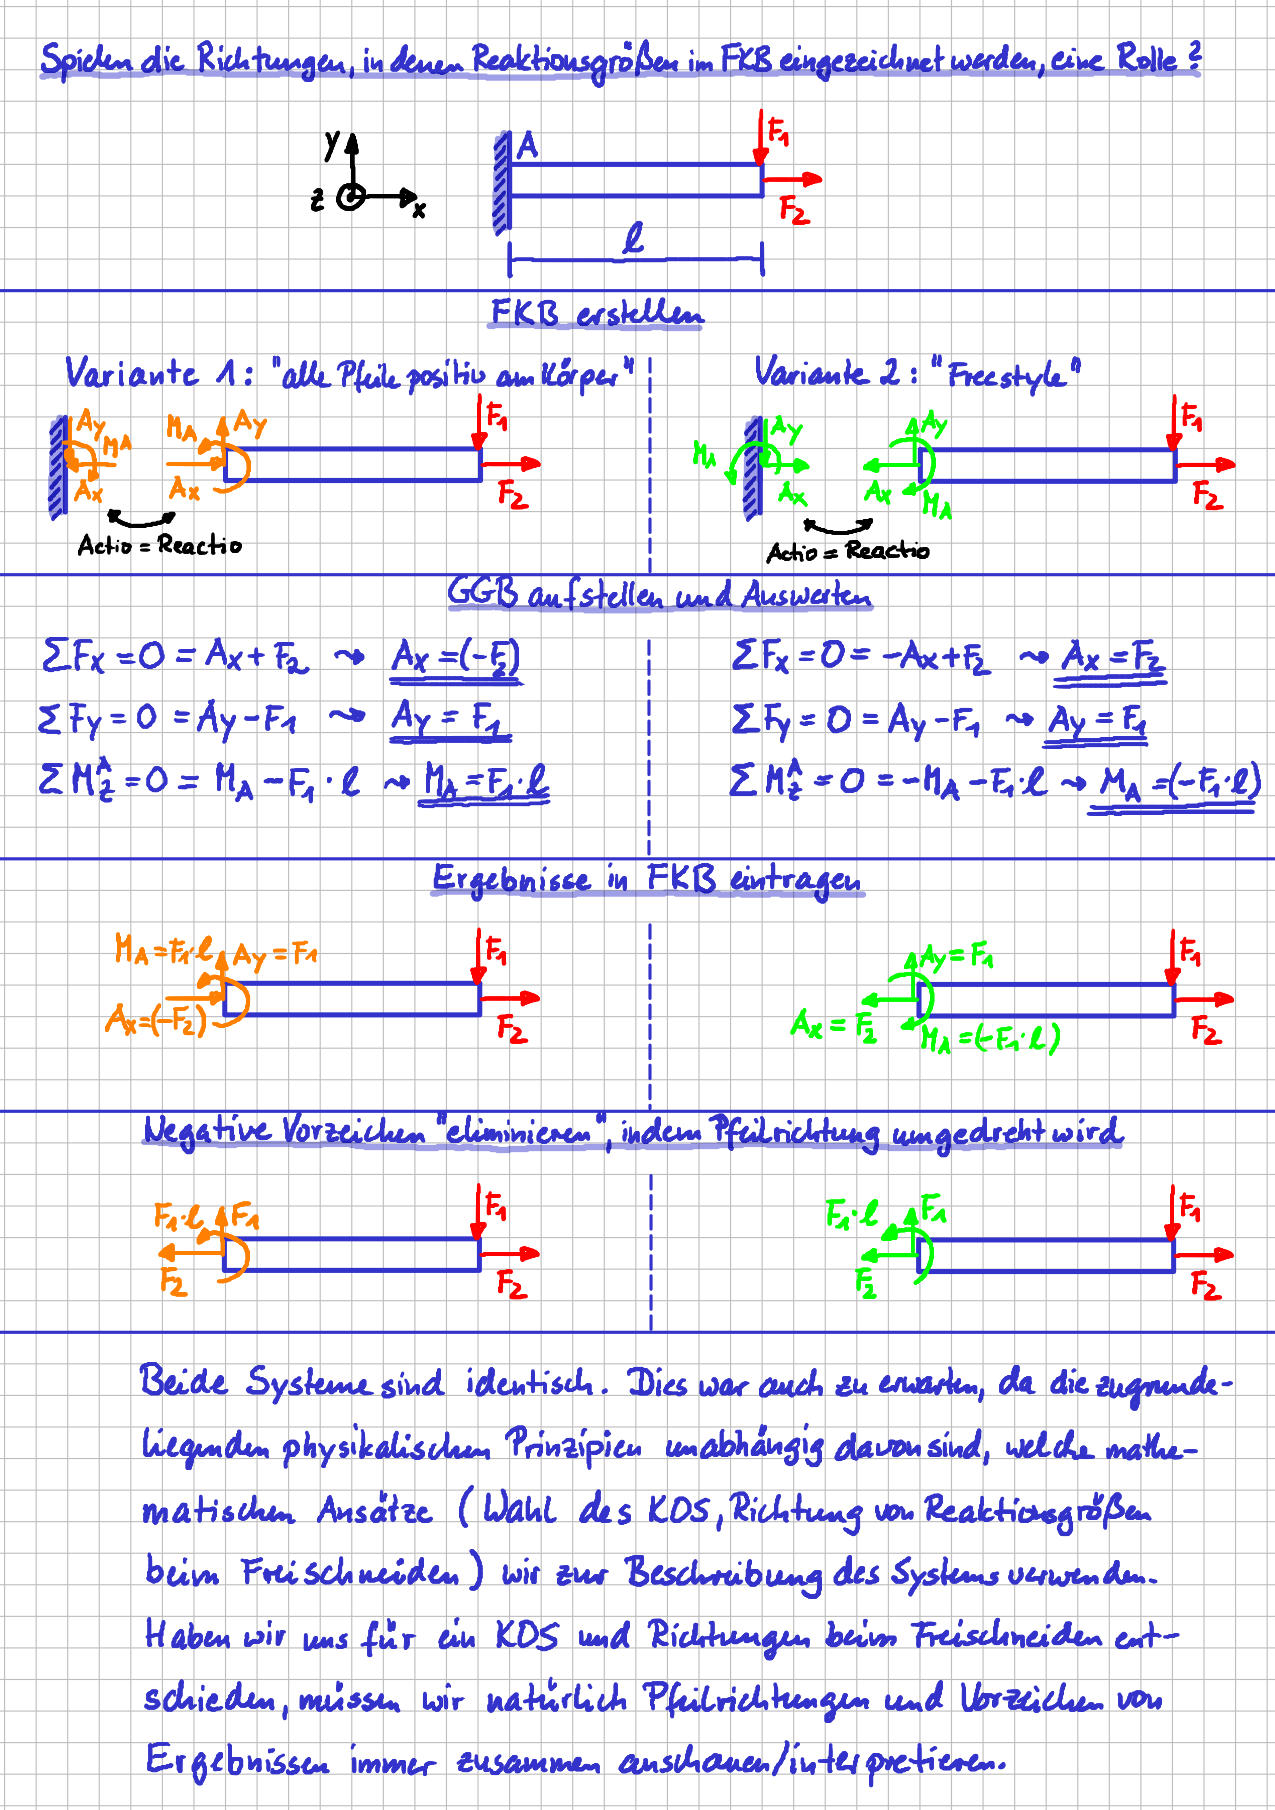 Spielen die Richtungen, in denen Reaktionsgrößen im FKB eingezeichnet werden, eine Rolle?
y
z
x
A
F1
F2
l
FKB erstellen
Variante 1: "alle Pfeile positiv am Körper"
Ay
MA
Ax
MA
Ay
Ax
F1
F2
Actio = Reactio
Variante 2: "Freestyle"
MA
Ay
Ax
Ay
Ax
MA
F1
F2
Actio = Reactio
GGB aufstellen und Auswerten
ΣFx = 0 = Ax + F2 ⇝ Ax = (-F2)
ΣFy = 0 = Ay - F1 ⇝ Ay = F1
ΣM_z^A = 0 = MA - F1 · l ⇝ MA = F1 · l
ΣFx = 0 = -Ax + F2 ⇝ Ax = F2
ΣFy = 0 = Ay - F1 ⇝ Ay = F1
ΣM_z^A = 0 = -MA - F1 · l ⇝ MA = (-F1 · l)
Ergebnisse in FKB eintragen
MA = F1 · l
Ay = F1
Ax = (-F2)
F1
F2
Ay = F1
Ax = F2
MA = (-F1 · l)
F1
F2
Negative Vorzeichen "eliminieren", indem Pfeilrichtung umgedreht wird
F1 · l
F1
F2
F1
F2
F1 · l
F1
F2
F1
F2
Beide Systeme sind identisch. Dies war auch zu erwarten, da die zugrunde-
liegenden physikalischen Prinzipien unabhängig davon sind, welche mathe-
matischen Ansätze (Wahl des KOS, Richtung von Reaktionsgrößen
beim Freischneiden) wir zur Beschreibung des Systems verwenden.
Haben wir uns für ein KOS und Richtungen beim Freischneiden ent-
schieden, müssen wir natürlich Pfeilrichtungen und Vorzeichen von
Ergebnissen immer zusammen anschauen/interpretieren.